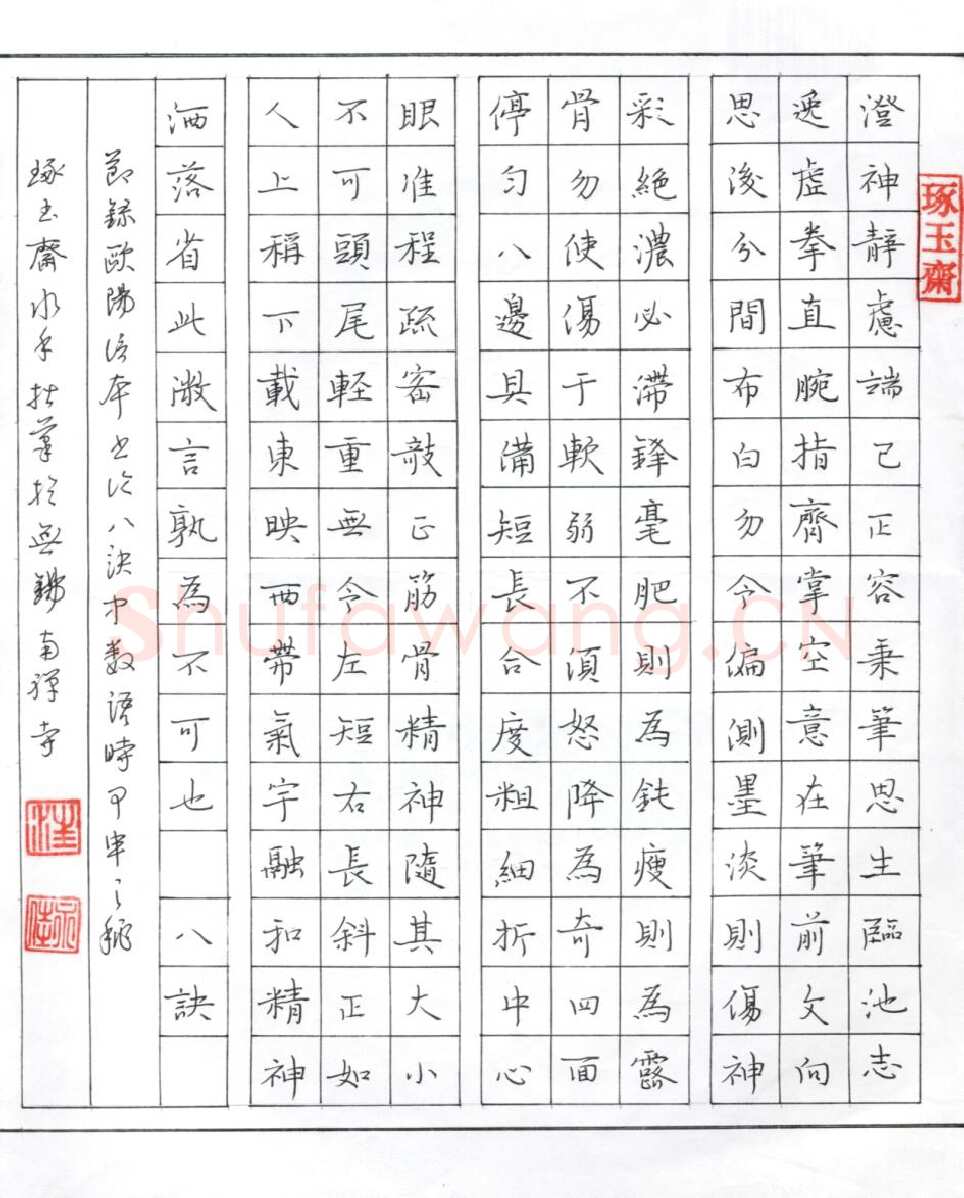 琢玉齋
澄神靜慮端己正容秉筆思生臨池志
逸虛拳直腕指齊掌空意在筆前文向
思後分間布白勿令偏側墨淡則傷神
彩絕濃必滯鋒毫肥則為鈍瘦則為露
骨勿使傷于軟弱不須怒降為奇四面
停勻八邊具備短長合度粗細折中心
眼准程疏密敧正筋骨精神隨其大小
不可頭尾輕重無令左短右長斜正如
人上稱下載東映西帶氣宇融和精神
洒落省此微言孰為不可也 八訣
節錄歐陽詢本書論八訣中數語時甲申之秋
琢玉齋水手拈筆於無錫南禪寺
Shufawang.CN